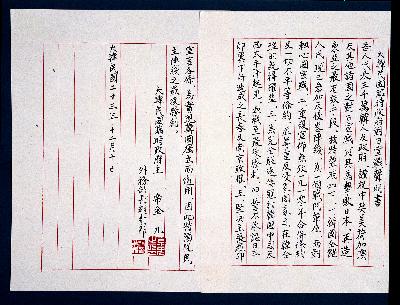 大韓民國臨時政府對日宣戰聲明書
吾人代表三千萬韓人及政府 謹祝中英美荷加濠
及其他諸國之對日宣戰 以其爲擊敗日本 再造
東亞之最有效手段 茲特聲明如下 一、韓國全體
人民 現已參加反侵略陣線 爲一個戰鬥單位 而對
軸心國宣戰 二、重復宣佈無效一九一零年合併條約
及一切不平等條約 並尊重反侵略國家之在韓合
理的既得權益 三、爲完全驅逐倭寇於韓國中國及
西太平洋起見 血戰至最後勝利 四、誓不承認日之
卵翼下所造成之長春及南京政權 五、堅決主張羅邱
宣言各條 爲實現韓國獨立而適用 因此特預祝民
主陣線之最後勝利
大韓民國臨時政府主席金九
外務部長趙素昂
大韓民國二十三年十二月十日